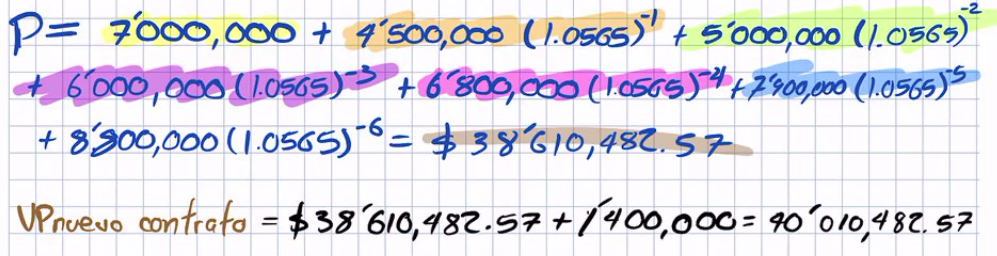 P= 7'000,000 + 4'500,000 (1.0565)⁻¹ + 5'000,000 (1.0565)⁻²
+ 6'000,000 (1.0565)⁻³ + 6'800,000 (1.0565)⁻⁴ + 7'800,000 (1.0565)⁻⁵
+ 8'900,000 (1.0565)⁻⁶ = $38'610,482.57
VPnuevo contrato = $38'610,482.57 + 1'400,000 = 40'010,482.57